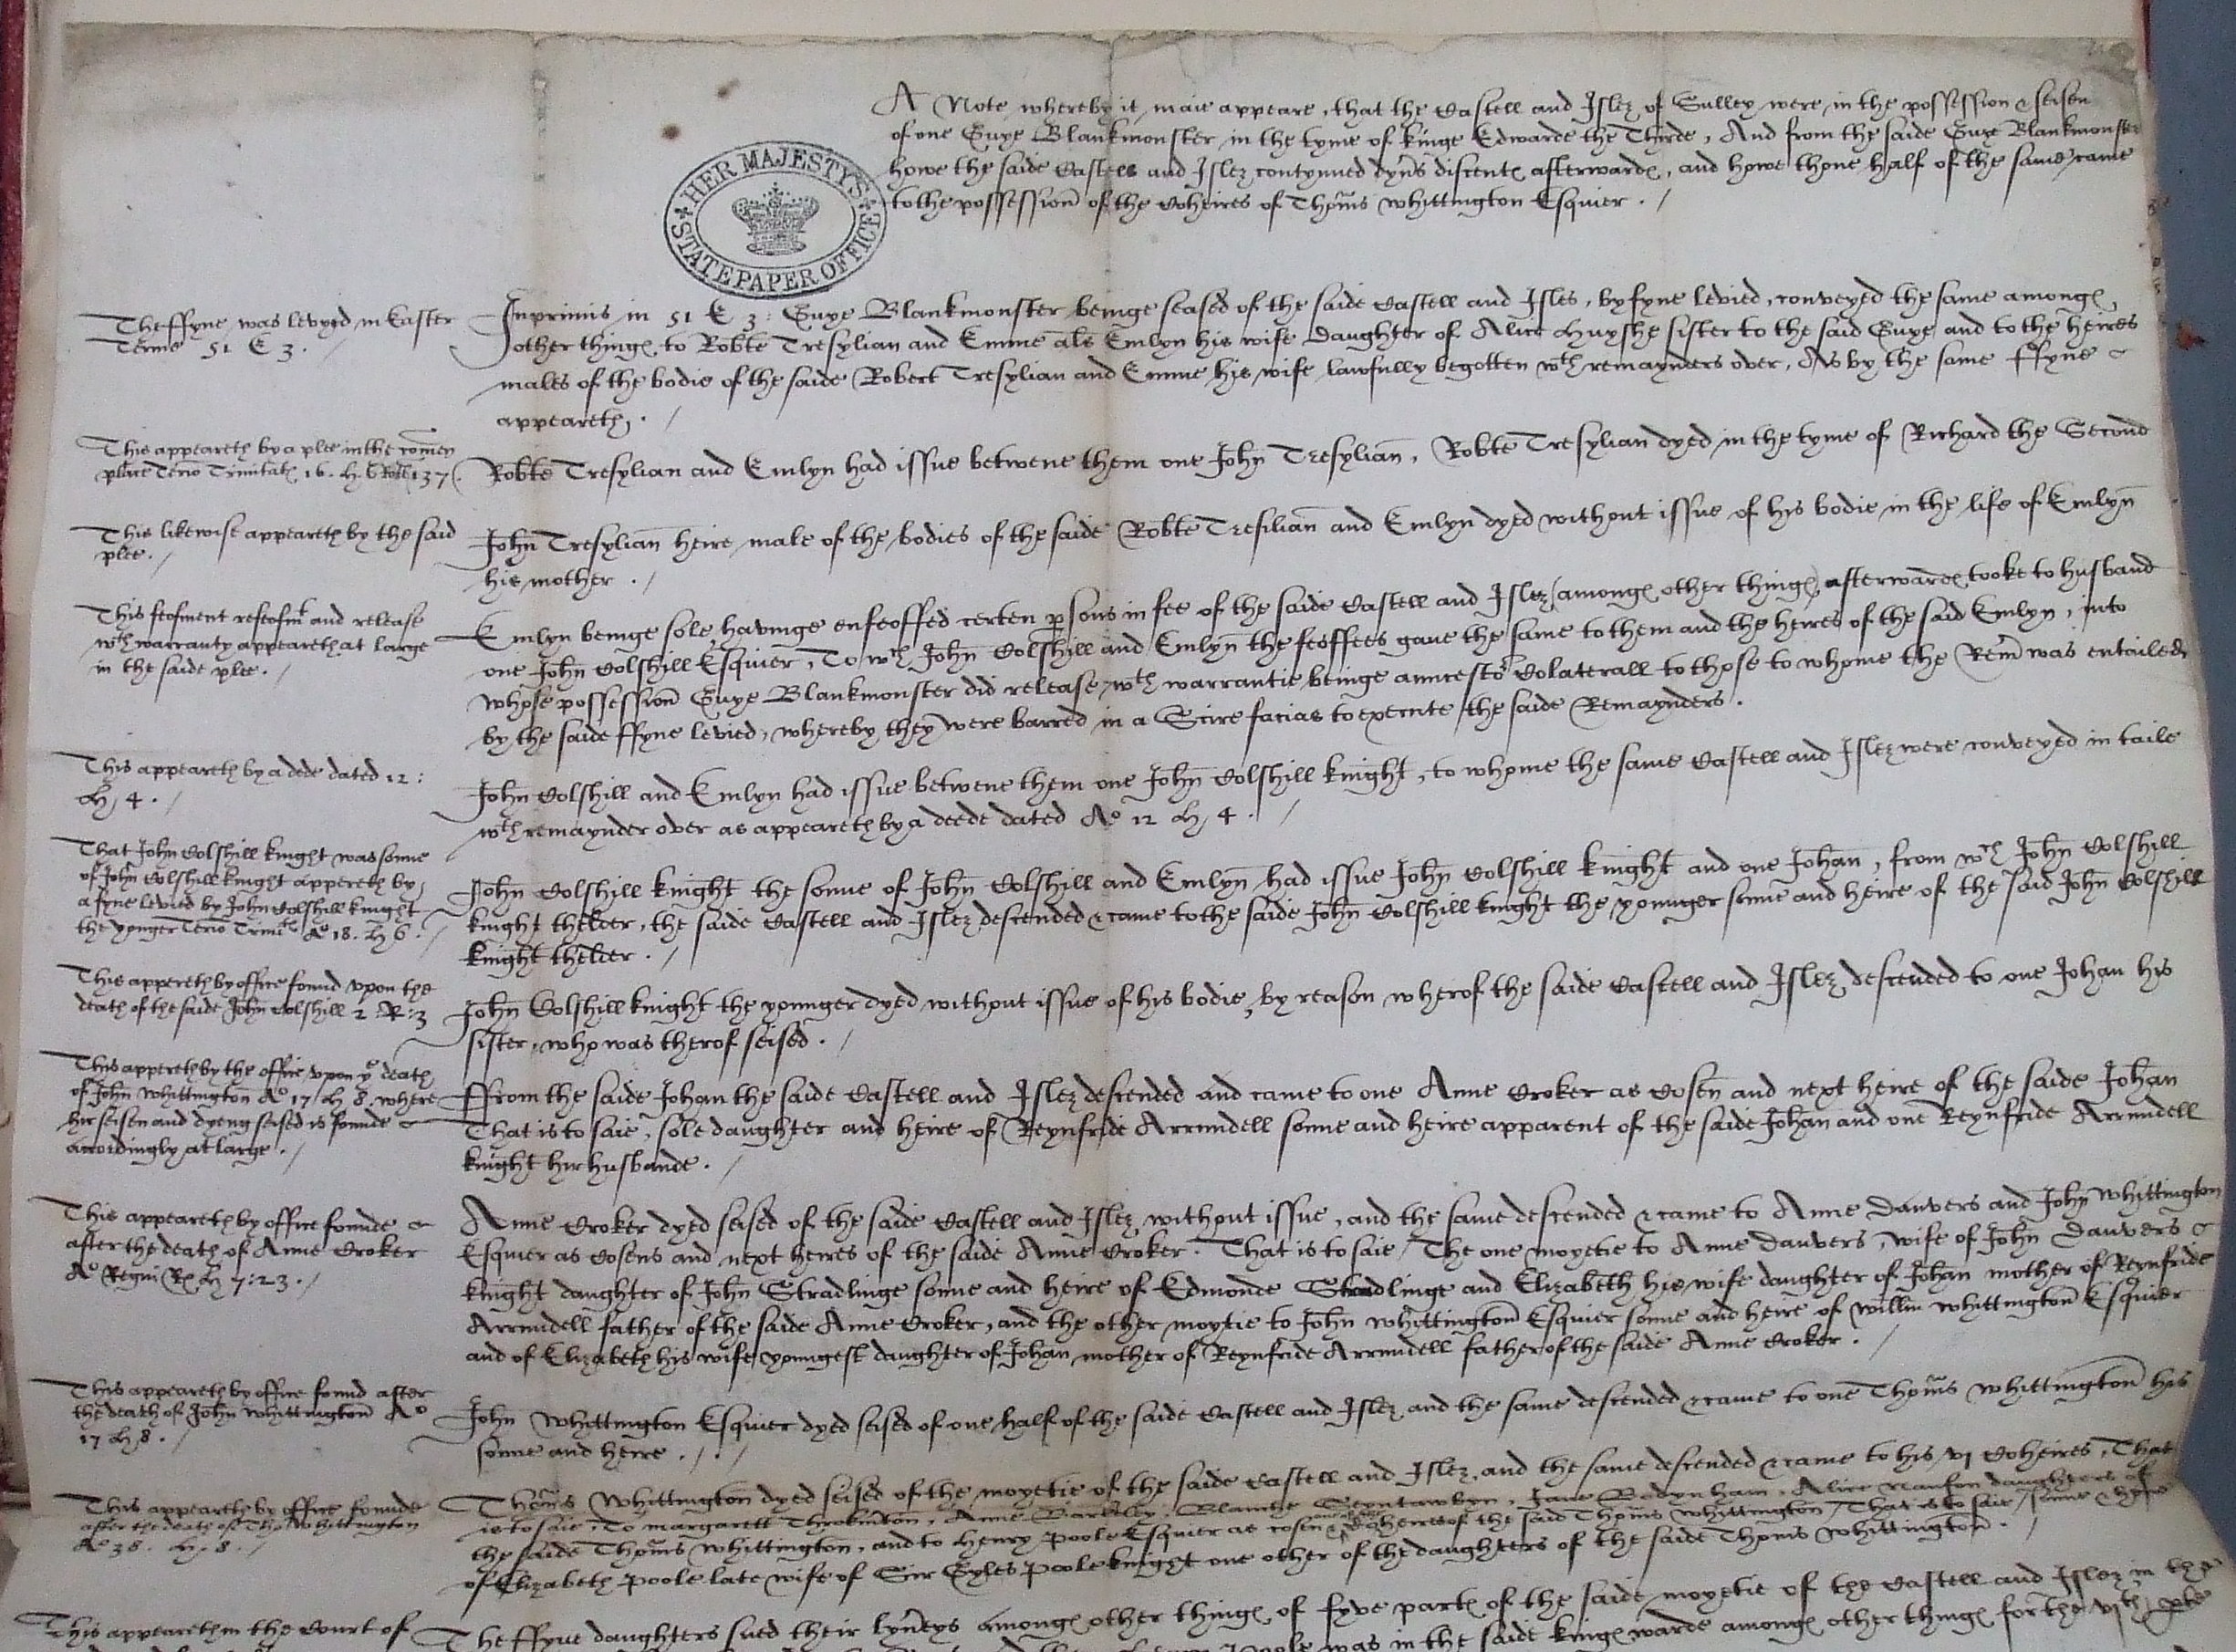 A Note whereby it maie appeare, that the Castell and Islez of Sulley were in the possession & seisen
of one Guye Blankmonster in the tyme of kinge Edwarde the Thirde, And from the saide Guye Blankmonster
howe the saide Castell and Islez contynued dyv's discent afterward, and howe thone half of the same came
to the possession of the Coheires of Thoms Whittington Esquier ./
HER MAJESTY'S
STATE PAPER OFFICE
The ffyne was levyed in Easter
Terme 51 E 3 ./
Inprimis in 51 E 3: Guye Blankmonster beinge seased of the saide Castell and Isles, by fyne levied, conveyed the same among
other thing to Robte Tresylian and Emme als Emlyn his wife daughter of Alice Huyshe sister to the said Guye and to the heires
males of the bodie of the saide Robert Tresylian and Emme his wife lawfully begotten wth remaynders over, As by the same ffyne
appeareth ./
This appeareth by a plee in the comen
place Trinitat 16. H. 6 137
Robte Tresylian and Emlyn had issue betwene them one John Tresylian, Robte Tresylian dyed in the tyme of Richard the Second
This likewise appeareth by the said
plee ./
John Tresylian heire male of the bodies of the saide Robte Tresilian and Emlyn dyed without issue of his bodie in the life of Emlyn
his mother ./
This feofment refeofmt and release
wth warranty appeareth at large
in the saide plee ./
Emlyn beinge sole, havinge enfeoffed certen psons in fee of the saide Castell and Islez (among other thing) afterward tooke to husband
one John Colshill Esquier, To wch John Colshill and Emlyn the feoffees gave the same to them and the heires of the said Emlyn, into
whose possession Guye Blankmonster did release wth warrantie beinge auncestor Colaterall to those to whome the Rem was entailed
by the saide ffyne levied, whereby they were barred in a Scire facias to execute the saide Remaynders .
This appeareth by a dede dated 12:
H 4 ./
John Colshill and Emlyn had issue betwene them one John Colshill knight, to whome the same Castell and Islez were conveyed in taile
wth remaynder over as appeareth by a deede dated Ao 12 H 4 ./
That John Colshill knight was sonne
of John Colshill knight appereth by
a fyne levied by John Colshill knight
the yonger Trinit Ao 18. H 6 ./
John Colshill knight the sonne of John Colshill and Emlyn had issue John Colshill knight and one Johan, from wch John Colshill
knight thelder, the saide Castell and Islez descended & came to the saide John Colshill knight the younger sonne and heire of the said John Colshill
knight thelder ./
This appereth by office found upon the
death of the saide John Colshill 2 R: 3
John Colshill knight the younger dyed without issue of his bodie, by reason wherof the saide Castell and Islez descended to one Johan his
sister, who was therof seised ./
This appereth by the office upon ye death
of John Whittington Ao 17 H 8. where
hir seisen and dyeng seised is founde
accordingly at large ./
ffrom the saide Johan the saide Castell and Islez descended and came to one Anne Croker as Cosen and next heire of the saide Johan
That is to saie, sole daughter and heire of Reynfride Arrundell sonne and heire apparent of the saide Johan and one Reynfride Arrundell
knight hir husbande ./
This appeareth by office founde
after the death of Anne Croker
Ao Regni R H 7: 23 ./
Anne Croker dyed seised of the saide Castell and Islez without issue, and the same descended & came to Anne Danvers and John Whittington
Esquier as Cosens and next heires of the saide Anne Croker. That is to saie, The one moyetie to Anne Danvers, wife of John Danvers
knight daughter of John Stradlinge sonne and heire of Edmonde Stradlinge and Elizabeth his wife daughter of Johan mother of Reynfride
Arrundell father of the saide Anne Croker, and the other moytie to John Whittington Esquier sonne and heire of Willm Whittington Esquier
and of Elizabeth his wife youngest daughter of Johan mother of Reynfride Arrundell father of the saide Anne Croker ./
This appeareth by office found after
the death of John Whittington Ao
17 H 8 ./
John Whittington Esquier dyed seised of one half of the saide Castell and Islez and the same descended & came to one Thoms Whittington his
sonne and heire ./
This appeareth by office founde
after the death of Tho Whittington
Ao 38. H. 8 ./
Thoms Whittington dyed seised of the moyetie of the saide Castell and Islez, and the same descended & came to his vi Coheires, That
is to saie, To Margarett Throkmton, Anne Barkley, Blanche Seyntawbyn, Jane Bodynham, Alice Nanfan daughters of
the saide Thoms Whittington, and to Henry Poole Esquier as cosen & heires of the said Thoms Whittington, That is to saie, sonne & heire
of Elizabeth Poole late wife of Sir Gyles Poole knight one other of the daughters of the saide Thoms Whittington ./
This appeareth in the Court of
The ffyve daughters sued their lyv'eys among other thing of fyve part of the saide moyetie of the Castell and Islez in the
Poole was in the saide king warde among other thing for the vith pte